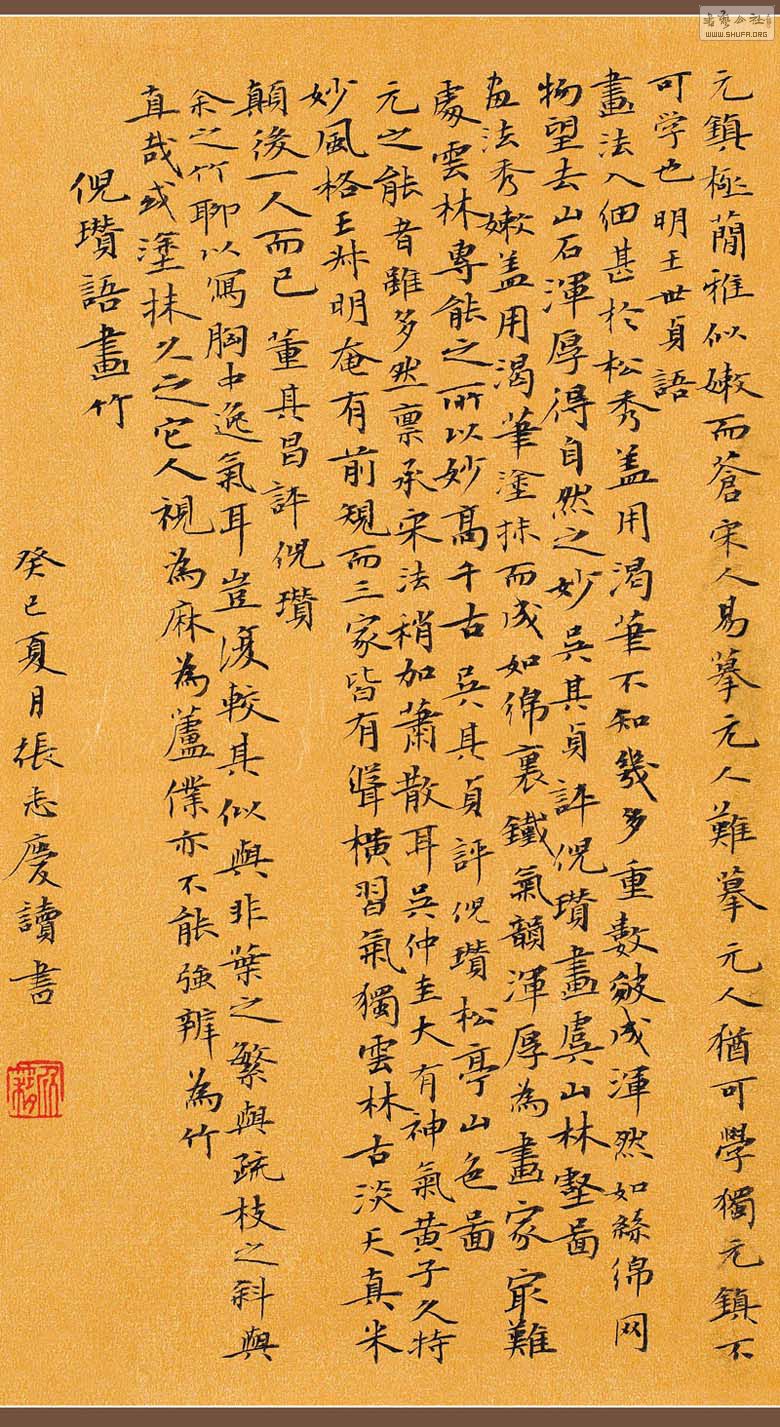 元鎮極簡雅似嫩而蒼宋人易摹元人難摹元人猶可學獨元鎮不
可学也明王世貞語
畫法入細甚於松秀盖用渴筆不知幾多重數皴成渾然如絲綿网
物望去山石渾厚得自然之妙吳其貞評倪瓚畫虞山林壑啚
畫法秀嫩盖用渴筆塗抹而成如綿裏鐵氣韻渾厚為畫家冣難
處雲林專能之所以妙髙千古吳其貞評倪瓚松亭山色啚
元之能者雖多然禀承宋法稍加蕭散耳吳仲圭大有神氣黄子久特
妙風格王叔明奄有前規而三家皆有縱橫習氣獨雲林古淡天真米
顛後一人而已 董其昌評倪瓚
余之竹聊以寫胸中逸氣耳豈復較其似與非葉之繁與疏枝之斜與
直哉或塗抹久之它人視為麻為蘆僕亦不能強辨為竹
倪瓚語畫竹
癸巳夏月張志慶讀書
書艺公社
WWW.SHUFA.ORG